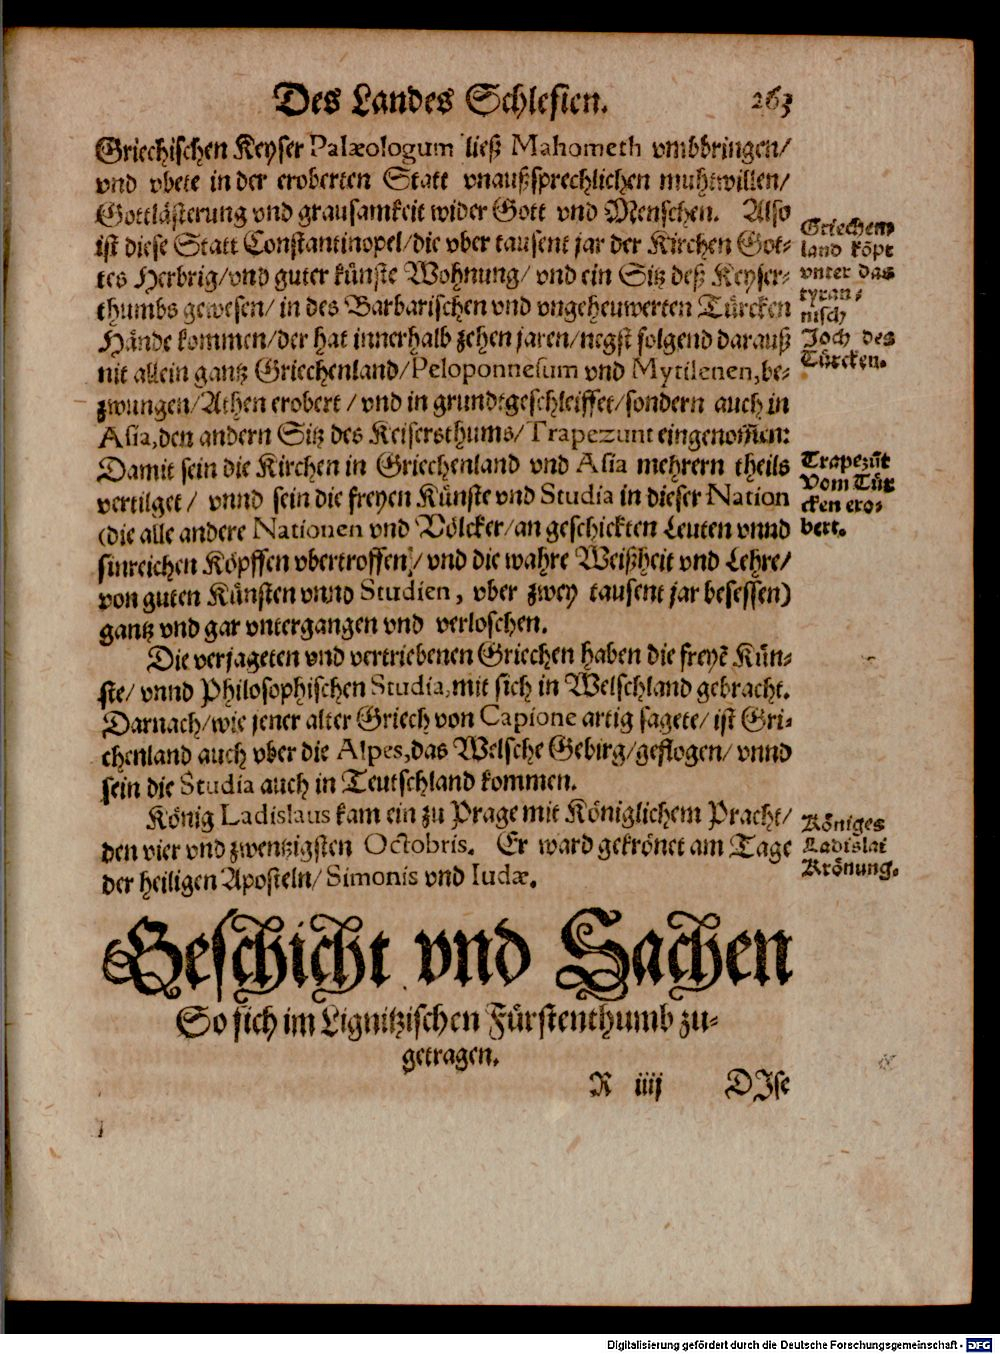 Des Landes Schlesien. 263
Griechischen Keyser Palæologum ließ Mahometh vmbbringen/
vnd vbete in der eroberten Statt vnaußsprechlichen muhtwillen/
Gottlästerung vnd grausamkeit wider Gott vnd Menschen. Also
ist diese Statt Constantinopel/die vber tausent jar der Kirchen Got-
tes Herbrig/vnd guter künste Wohnung/ vnd ein Sitz deß Keyser-
thumbs gewesen/ in des Barbarischen vnd vngeheuwerten Türcken
Hände kommen/der hat innerhalb zehen jaren/negst folgend darauß
nit allein gantz Griechenland/Peloponnesum vnd Mytilenen,be-
zwungen/Athen erobert / vnd in grundt geschleiffet/sondern auch in
Asia,den andern Sitz des Keisersthums/Trapezunt eingenom̃en:
Damit sein die Kirchen in Griechenland vnd Asia mehrern theils
vertilget/ vnnd sein die freyen Künste vnd Studia in dieser Nation
(die alle andere Nationen vnd Völcker/an geschickten Leuten vnnd
sinreichen Köpffen vbertroffen/ vnd die wahre Weißheit vnd Lehre/
von guten Künsten vnnd Studien, vber zwey tausent jar besessen)
gantz vnd gar vntergangen vnd verloschen.
Griechen-
land köpt
vnter das
tyran-
nisch
Joch des
Türcken.
Trapezūt
vom Tür
cken ero-
bert.
Die verjageten vnd vertriebenen Griechen haben die freyē Kün-
ste/ vnnd Philosophischen Studia,mit sich in Welschland gebracht.
Darnach/wie jener alter Griech von Capione artig sagete/ ist Gri-
chenland auch vber die Alpes,das Welsche Gebirg/geflogen/ vnnd
sein die Studia auch in Teutschland kommen.
König Ladislaus kam ein zu Prage mit Königlichem Pracht/
den vier vnd zwentzigsten Octobris. Er ward gekrönet am Tage
der heiligen Aposteln/ Simonis vnd Iudæ.
Königes
Ladislai
Krönung.
Geschicht vnd Sachen
So sich im Lignitzischen Fürstenthumb zu-
getragen.
R iiij DJse
Digitalisierung gefördert durch die Deutsche Forschungsgemeinschaft - DFG